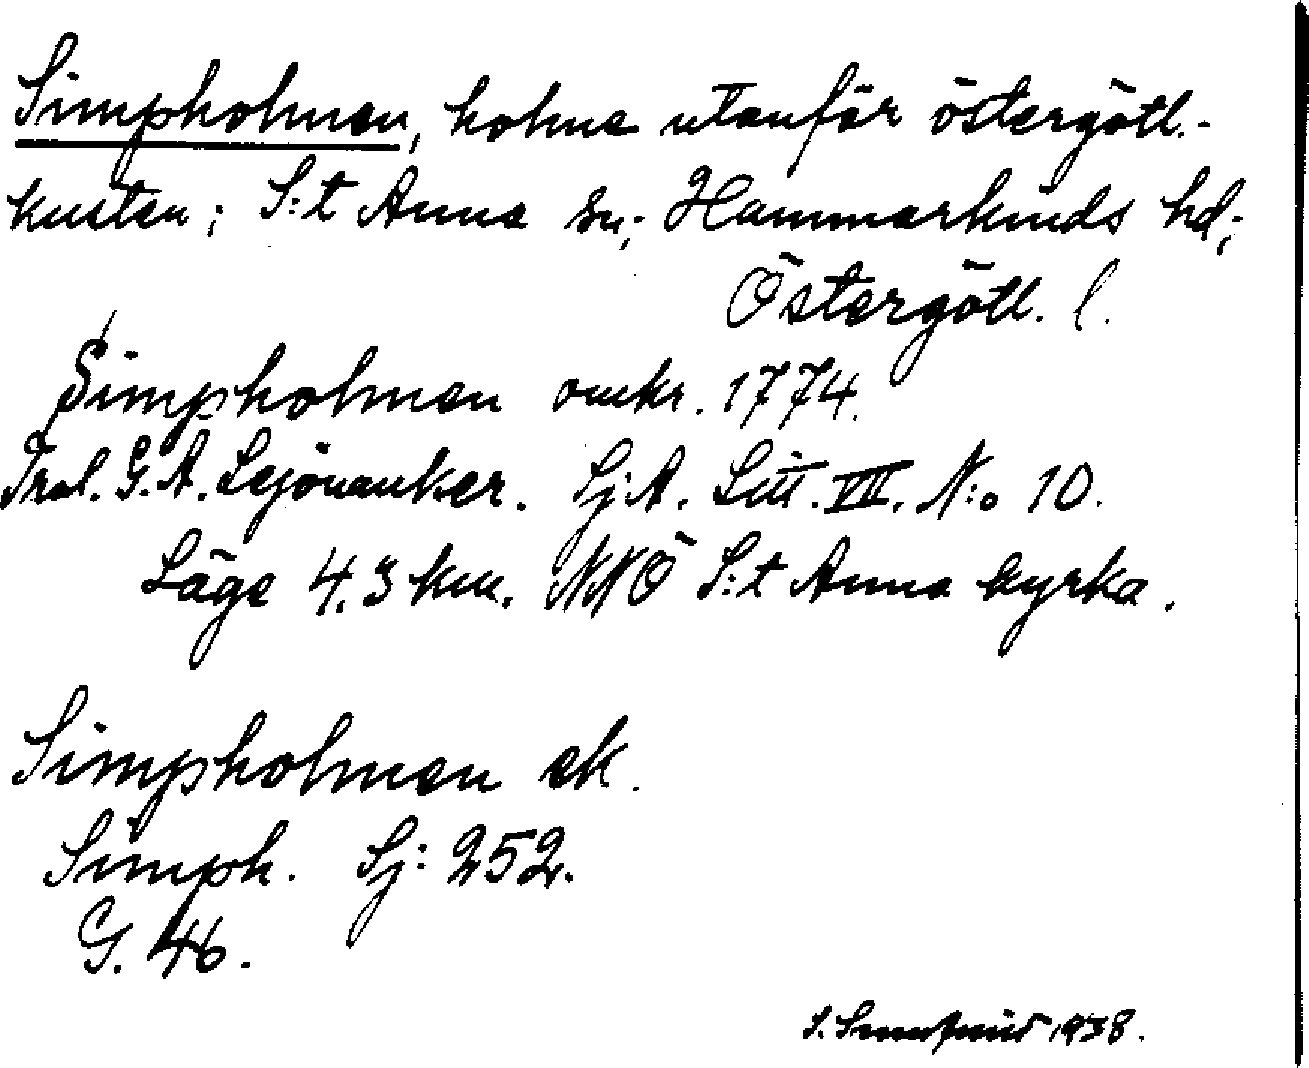 Simpholmen, holme utanför östergötl.-
kusten; S:t Anna sn; Hammarkinds hd;
Östergötl. l.
Simpholmen omkr. 1774.
Trol. G. A. Lejonanker. Sj.A. Litt. VII. N:o 10.
Läge 4.3 km. NNÖ S:t Anna kyrka.
Simpholmen ek.
Simph. Sj: 252.
G. 46.
1938.